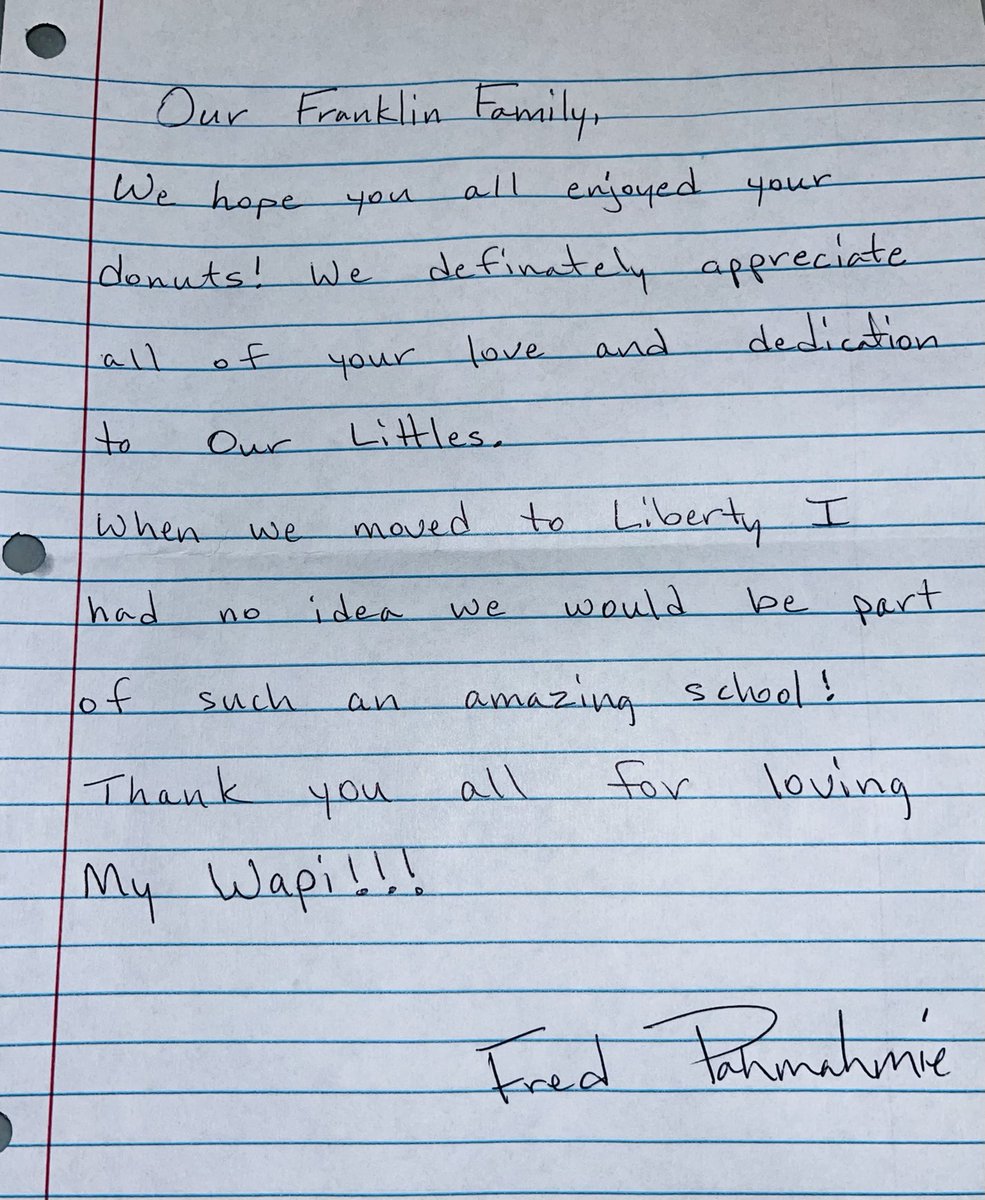 Our Franklin Family,
We hope you all enjoyed your
donuts! We definately appreciate
all of your love and dedication
to Our Littles.
When we moved to Liberty I
had no idea we would be part
of such an amazing school!
Thank you all for loving
My Wapi!!!
Fred Pahmahmie